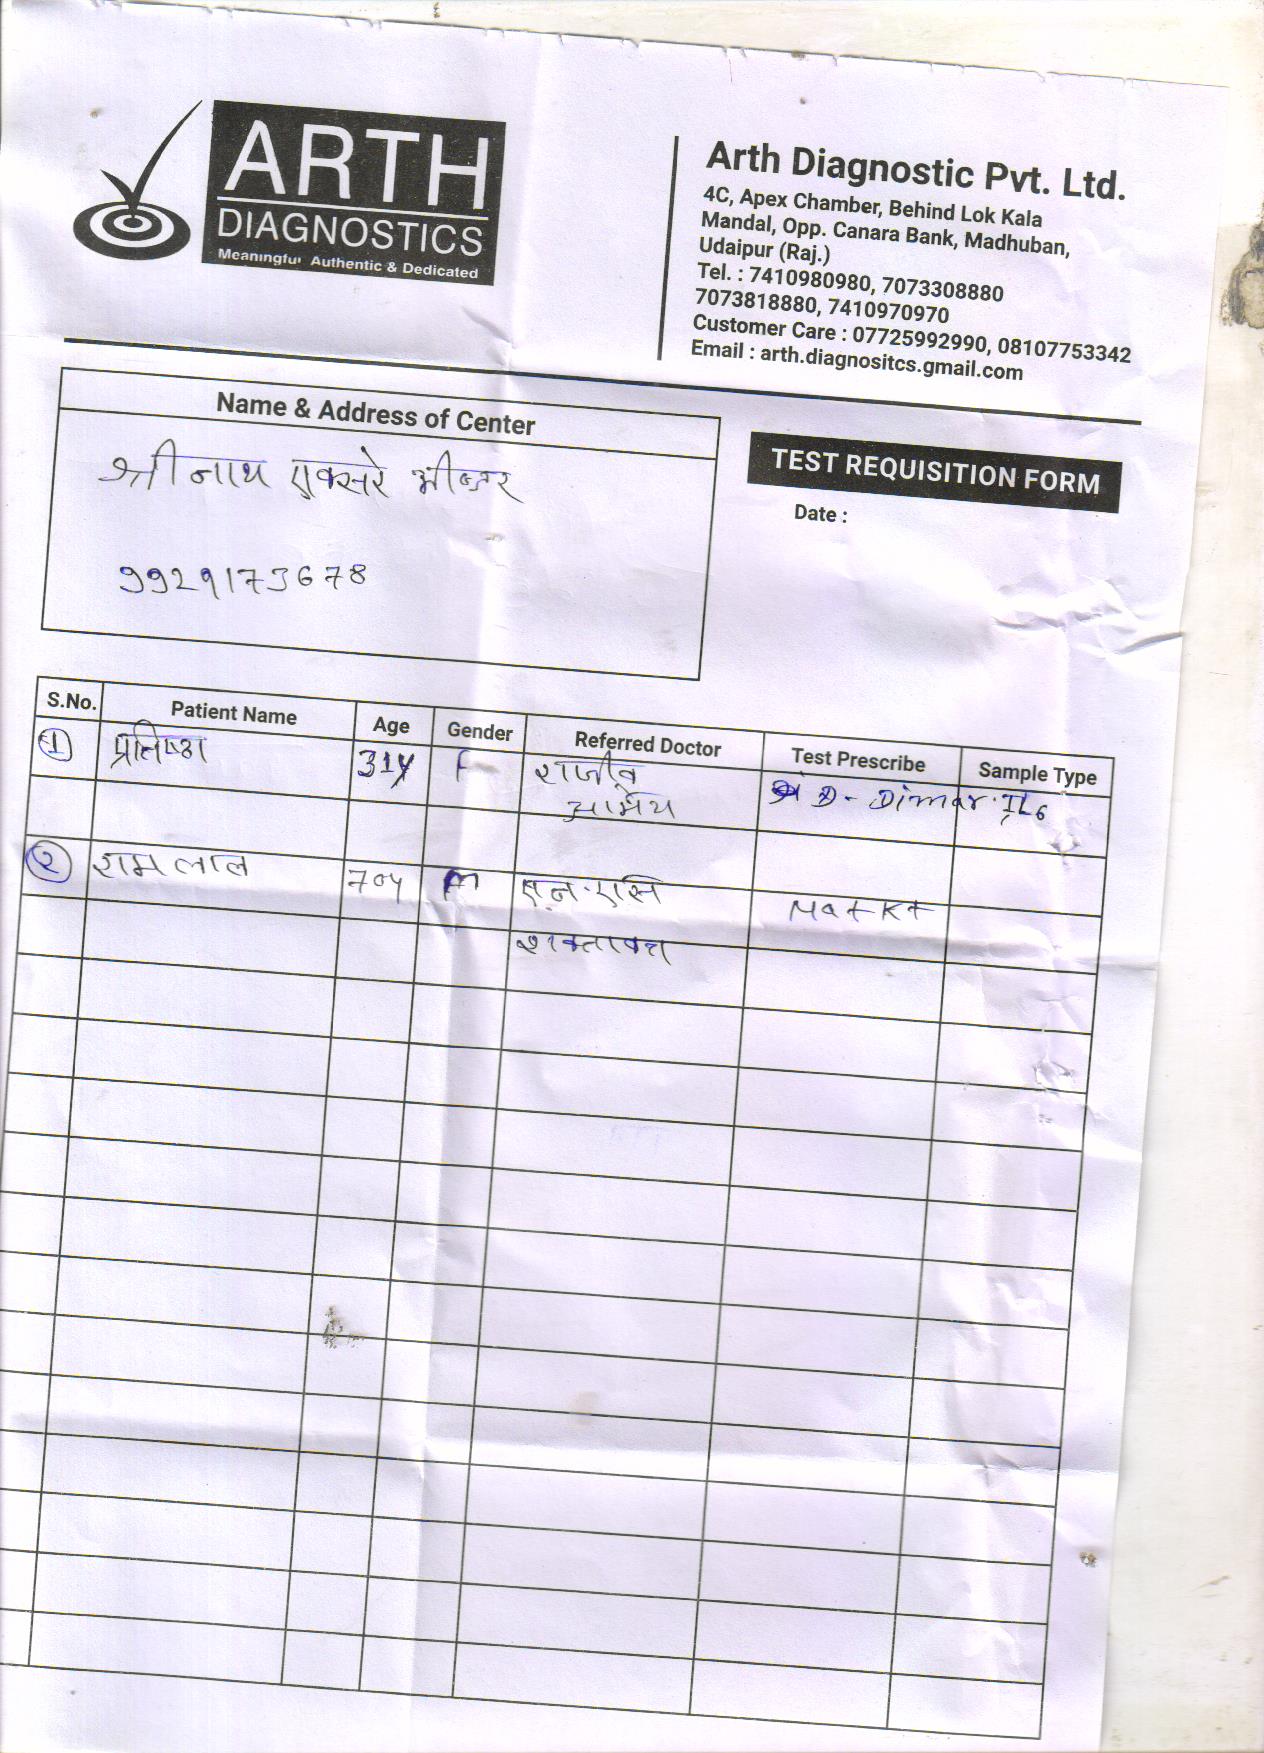 ARTH
DIAGNOSTICS
Meaningful Authentic & Dedicated
Arth Diagnostic Pvt. Ltd.
4C, Apex Chamber, Behind Lok Kala
Mandal, Opp. Canara Bank, Madhuban,
Udaipur (Raj.)
Tel. : 7410980980, 7073308880
7073818880, 7410970970
Customer Care : 07725992990, 08107753342
Email : arth.diagnositcs.gmail.com
Name & Address of Center
श्रीनाथ एक्सरे भीण्डर
9929173678
TEST REQUISITION FORM
Date :
S.No. Patient Name Age Gender Referred Doctor Test Prescribe Sample Type
1 प्रतिष्ठा 31y F राजीव D- Dimar. IL6
आमेय
२ राम लाल 70y M एन. एस
शक्तावत Na+K+